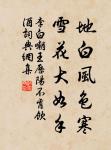 地白風色寒
雪花大如手
李白嘲王歷陽不肯飲
酒詞典網集